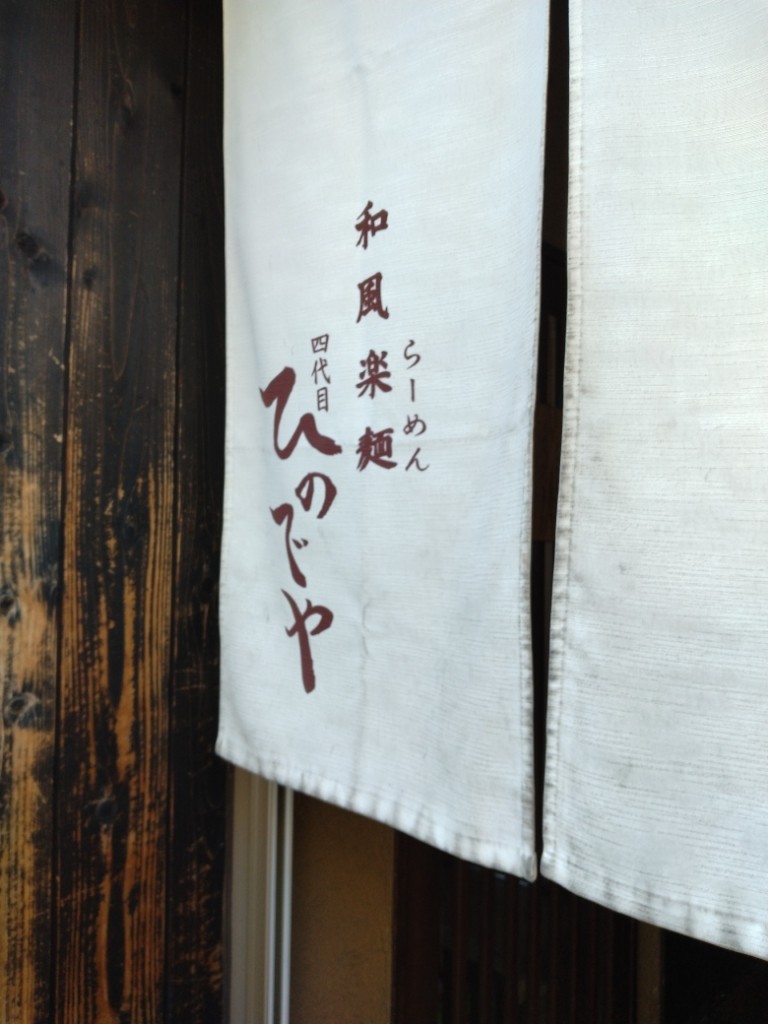 らーめん
和風楽麺
四代目
ひのでや